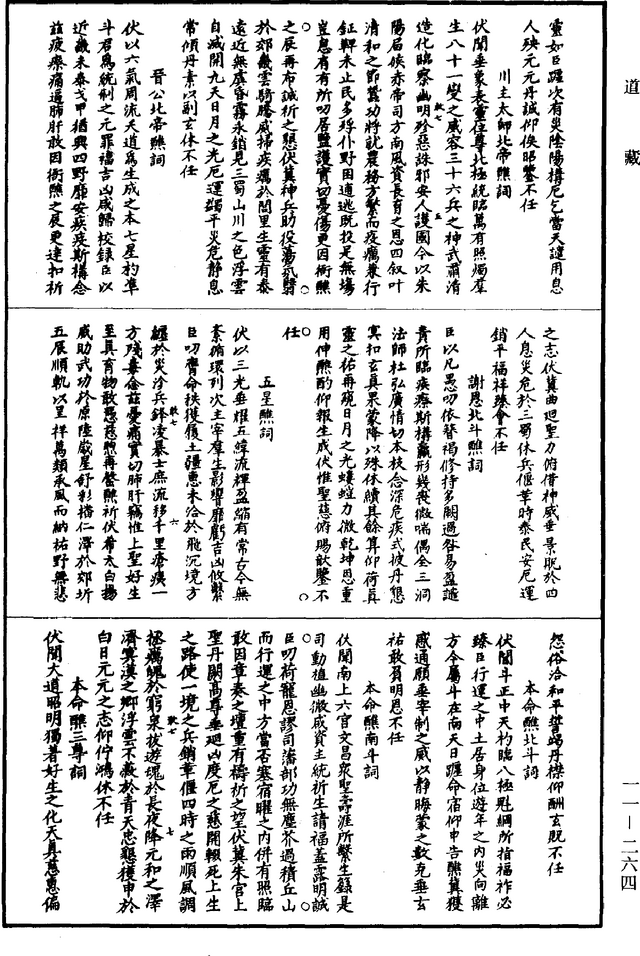 道藏
靈如臣躔次有災陰陽構厄乞當天譴用息
人殃元元丹誠仰俟昭鑒不任
川主太師北帝醮詞
伏聞垂象表靈位尊北極統臨萬有照燭羣
生八十一變之威容三十六兵之神武肅清
造化臨察幽明殄惡誅邪安人護國今以朱
陽屆候赤帝司方南風資長育之恩四叙叶
清和之節蠶功將就農務方繁而疫癘兼行
鉦鞞未止民多殍仆野困逋逃既投足無塲
豈息肩有所叨居鹽護實切憂傷更因衙醮
之辰再布誠祈之懇伏冀神兵助役蕩氛翳
於郊畿雲騎騰威掃疾癘於閭里生靈有泰
遠近無虞昏霧永銷見三蜀山川之色浮雲
自滅開九天日月之光厄運蠲平災危静息
常傾丹素以副玄休不任
晉公北帝醮詞
伏以六氣周流天道爲生成之本七星杓準
斗君爲統制之元罪福吉凶咸歸校録臣以
近畿未泰戈甲猶興四野靡安疾疫斯構念
兹疲瘵痛逼肺肝敢因衙醮之辰更達扣祈
之志伏冀曲廻聖力俯借神威垂景貺於四
人息災危於三蜀休兵偃革時泰民安厄運
銷平福祥臻會不任
謝恩北斗醮詞
臣以凡愚叨依替褐修持多闕過咎易盈譴
責所臨疾瘵斯構羸形幾喪微喘偶全三洞
法師杜弘廣情切本枝念深危疾式披丹懇
冥扣玄真果蒙降以殊休續其餘算仰荷真
靈之祐再覩日月之光螻螘力微乾坤恩重
用伸醮酌仰報生成伏惟聖慈俯賜歆鑒不
任
五星醮詞
伏以三光垂耀五緯流輝盈縮有常古今無
紊循環列次主宰羣生影響靡虧吉凶攸繫
臣叨膺命秩獲履土疆惠未洽於飛沉境方
纏於災沴兵鋒凌暴士庶流移千里瘡痍一
方殘毒念兹憂痛實切肺肝竊惟上聖好生
至真育物敢憑慈醮再罄醮祈伏希太白揚
威助武功於原陸歲星舒彩播仁澤於郊圻
五辰順軌以呈祥萬類承風而納祐野無悲
怨俗洽和平誓竭丹襟仰酬玄貺不任
本命醮北斗詞
伏聞斗正中天杓臨八極魁綱所指福祚必
臻臣行運之中土居身位遊年之内災向離
方今屬斗在南天日躔命宿仰申告醮冀獲
感通願垂宰制之威以静晦蒙之數克垂玄
祐敢荷明恩不任
本命醮南斗詞
伏聞南上六官文昌衆聖壽涯所繫生録是
司動植幽微咸資主統祈生請福蓋露明誠
臣叨荷寵恩謬司藩部功無塵芥過積丘山
而行運之中方當否塞宿曜之内併有照臨
敢因章奏之壇重有禱祈之望伏冀朱官上
聖丹闕高尊垂廻凶度厄之慈開輟死上生
之路使一境之兵銷革偃四時之雨順風調
拯癘魄於窮泉拔遊魂於長夜降元和之澤
濟冥漠之鄉浮雲不蔽於青天忠懇獲申於
白日元元之志仰佇鴻休不任
本命醮三尊詞
伏聞大道昭明獨著好生之化天真慈惠偏
一一—二六四